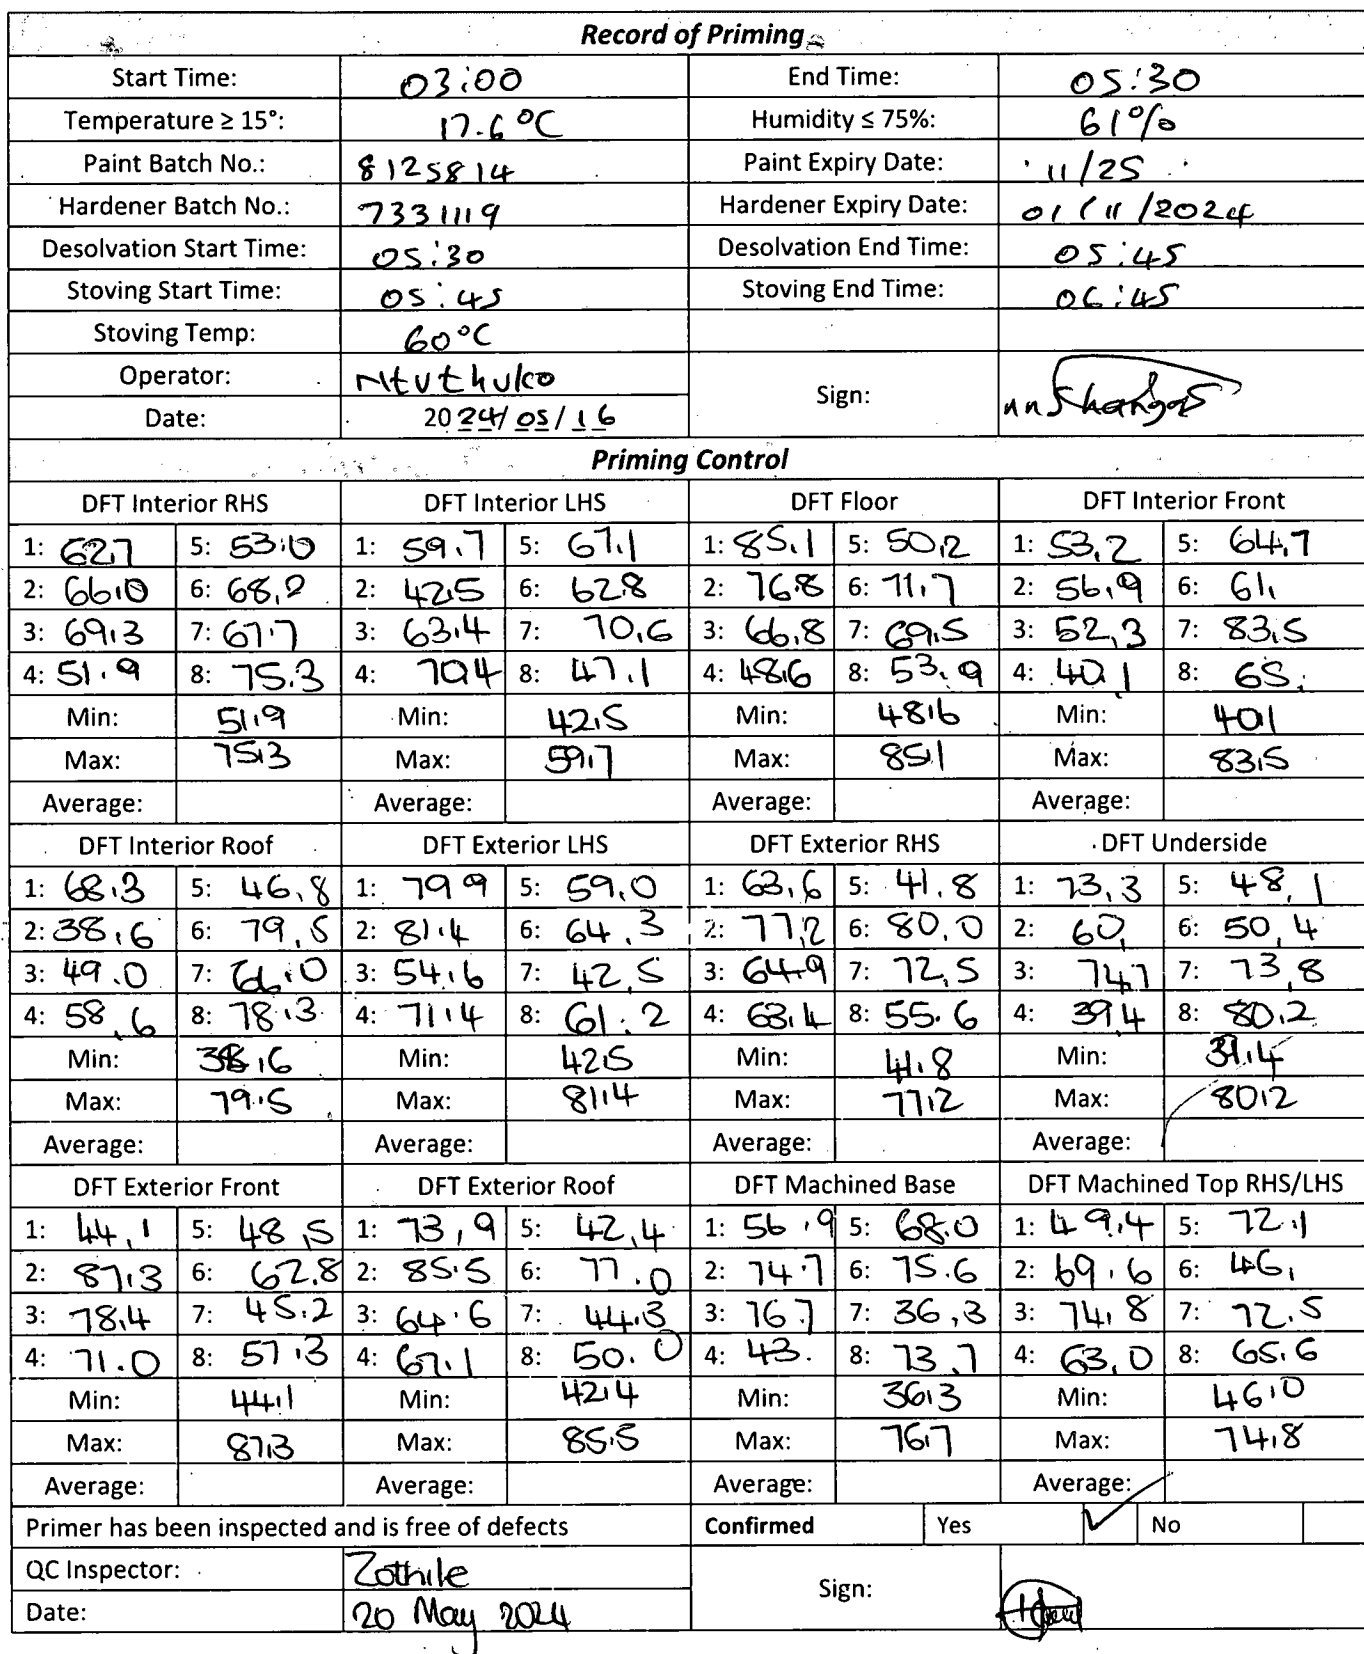 Record of Priming
Start Time: 03:00 End Time: 05:30
Temperature ≥ 15°: 17.6 °C Humidity ≤ 75%: 61%
Paint Batch No.: 8125814 Paint Expiry Date: 11/25
Hardener Batch No.: 7331119 Hardener Expiry Date: 01/11/2024
Desolvation Start Time: 05:30 Desolvation End Time: 05:45
Stoving Start Time: 05:45 Stoving End Time: 06:45
Stoving Temp: 60°C
Operator: Ntuthuko Sign:
Date: 2024/05/16
Priming Control
DFT Interior RHS DFT Interior LHS DFT Floor DFT Interior Front
1: 62,7 5: 53,0 1: 59,7 5: 67,1 1: 85,1 5: 50,2 1: 53,2 5: 64,7
2: 66,0 6: 68,2 2: 42,5 6: 62,8 2: 76,8 6: 71,7 2: 56,9 6: 61,
3: 69,3 7: 67,7 3: 63,4 7: 70,6 3: 66,8 7: 69,5 3: 52,3 7: 83,5
4: 51,9 8: 75,3 4: 70,4 8: 47,1 4: 48,6 8: 53,9 4: 40,1 8: 65,
Min: 51,9 Min: 42,5 Min: 48,6 Min: 40,1
Max: 75,3 Max: 59,7 Max: 85,1 Max: 83,5
Average: Average: Average: Average:
DFT Interior Roof DFT Exterior LHS DFT Exterior RHS DFT Underside
1: 68,3 5: 46,8 1: 79,9 5: 59,0 1: 63,6 5: 41,8 1: 73,3 5: 48,1
2: 38,6 6: 79,5 2: 81,4 6: 64,3 2: 77,2 6: 80,0 2: 60, 6: 50,4
3: 49,0 7: 66,0 3: 54,6 7: 42,5 3: 64,9 7: 72,5 3: 74,7 7: 73,8
4: 58,6 8: 78,3 4: 71,4 8: 61,2 4: 63,4 8: 55,6 4: 39,4 8: 80,2
Min: 38,6 Min: 42,5 Min: 41,8 Min: 39,4
Max: 79,5 Max: 81,4 Max: 77,2 Max: 80,2
Average: Average: Average: Average:
DFT Exterior Front DFT Exterior Roof DFT Machined Base DFT Machined Top RHS/LHS
1: 44,1 5: 48,5 1: 73,9 5: 42,4 1: 56,9 5: 68,0 1: 49,4 5: 72,1
2: 87,3 6: 62,8 2: 85,5 6: 77,0 2: 74,7 6: 75,6 2: 69,6 6: 46,
3: 78,4 7: 45,2 3: 64,6 7: 44,3 3: 76,7 7: 36,3 3: 74,8 7: 72,5
4: 71,0 8: 57,3 4: 67,1 8: 50,0 4: 43, 8: 73,7 4: 63,0 8: 65,6
Min: 44,1 Min: 42,4 Min: 36,3 Min: 46,0
Max: 87,3 Max: 85,5 Max: 76,7 Max: 74,8
Average: Average: Average: Average:
Primer has been inspected and is free of defects Confirmed Yes ✓ No
QC Inspector: Zothile Sign:
Date: 20 May 2024